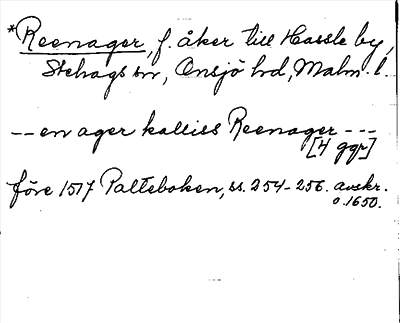 *Reenager, f. åker till Hassle by,
Stehags sn, Onsjö hd, Malm. l.
-- en ager kalliss Reenager ---
[4 ggr]
före 1517 Palteboken, ss. 254-256. avskr.
o. 1650.